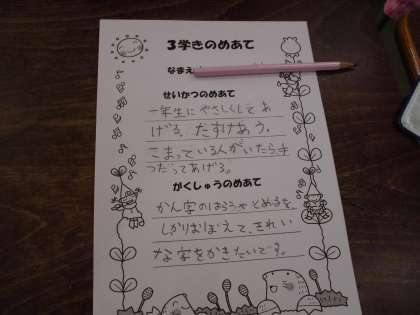 3学きのめあて
なまえ
せいかつのめあて
一年生にやさしくしてあ
げる。たすけあう。
こまっている人がいたら手
つだってあげる。
がくしゅうのめあて
かん字のはらうやとめるを
しかりおぼえて、きれい
な字をかきたいです。